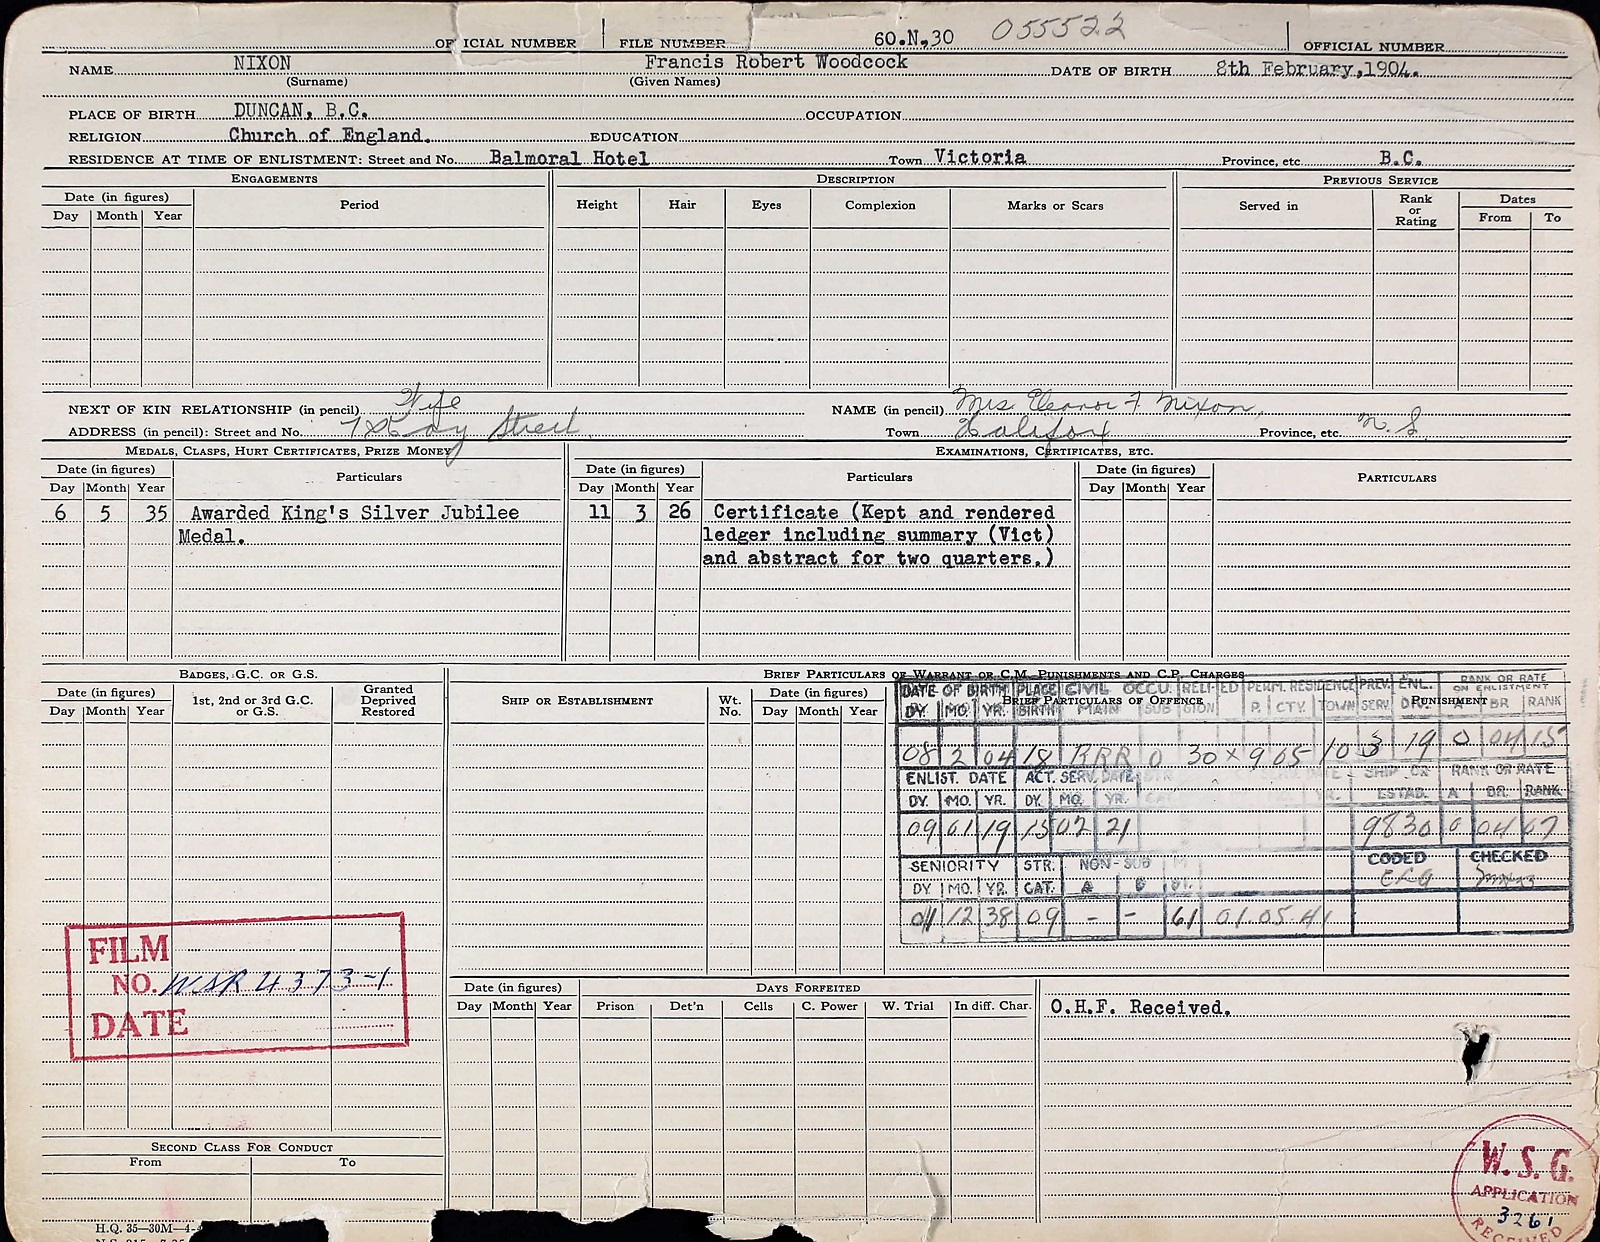 OFFICIAL NUMBER FILE NUMBER 60.N.30 055522 OFFICIAL NUMBER
NAME NIXON Francis Robert Woodcock DATE OF BIRTH 8th February,1904.
(Surname) (Given Names)
PLACE OF BIRTH DUNCAN, B.C. OCCUPATION
RELIGION Church of England. EDUCATION
RESIDENCE AT TIME OF ENLISTMENT: Street and No. Balmoral Hotel Town Victoria Province, etc. B.C.
ENGAGEMENTS DESCRIPTION PREVIOUS SERVICE
Date (in figures) Period Height Hair Eyes Complexion Marks or Scars Served in Rank or Rating Dates
Day Month Year From To
NEXT OF KIN RELATIONSHIP (in pencil) Wife NAME (in pencil) Mrs. Eleanor F. Nixon,
ADDRESS (in pencil): Street and No. Street Town Halifax Province, etc. N.S.
MEDALS, CLASPS, HURT CERTIFICATES, PRIZE MONEY EXAMINATIONS, CERTIFICATES, ETC.
Date (in figures) Particulars Date (in figures) Particulars Date (in figures) PARTICULARS
Day Month Year Day Month Year Day Month Year
6 5 35 Awarded King's Silver Jubilee 11 3 26 Certificate (Kept and rendered
Medal. ledger including summary (Vict)
and abstract for two quarters.)
BADGES, G.C. OR G.S. BRIEF PARTICULARS OF WARRANT OR C.M. PUNISHMENTS AND C.P. CHARGES
Date (in figures) 1st, 2nd or 3rd G.C. or G.S. Granted Deprived Restored SHIP OR ESTABLISHMENT Wt. No. Date (in figures) BRIEF PARTICULARS OF OFFENCE PUNISHMENT
Day Month Year Day Month Year
DATE OF BIRTH PLACE BIRTH CIVIL OCCU. RELIGION ED PERM. RESIDENCE PREV. SERV. ENL. DIV. RANK OR RATE ON ENLISTMENT
DY. MO. YR. MAIN SUB P. CTY. TOWN A BR RANK
08 2 04 18 RRR 0 30 x 9 05 10 3 19 0 04 15
ENLIST. DATE ACT. SERV. DATE SHIP OR ESTAB. RANK OR RATE
DY. MO. YR. DY. MO. YR. A BR. RANK
09 01 19 15 02 21 9830 0 04 67
SENIORITY STR. CAT. NON-SUB CODED CHECKED
DY MO. YR.
01 12 38 09 - - 61 01.05.41
FILM
NO. WSR 4373-1
DATE
Date (in figures) DAYS FORFEITED
Day Month Year Prison Det'n Cells C. Power W. Trial In diff. Char.
O.H.F. Received.
SECOND CLASS FOR CONDUCT
From To
W. S. G.
APPLICATION
3261
RECEIVED
H.Q. 35—30M—4-